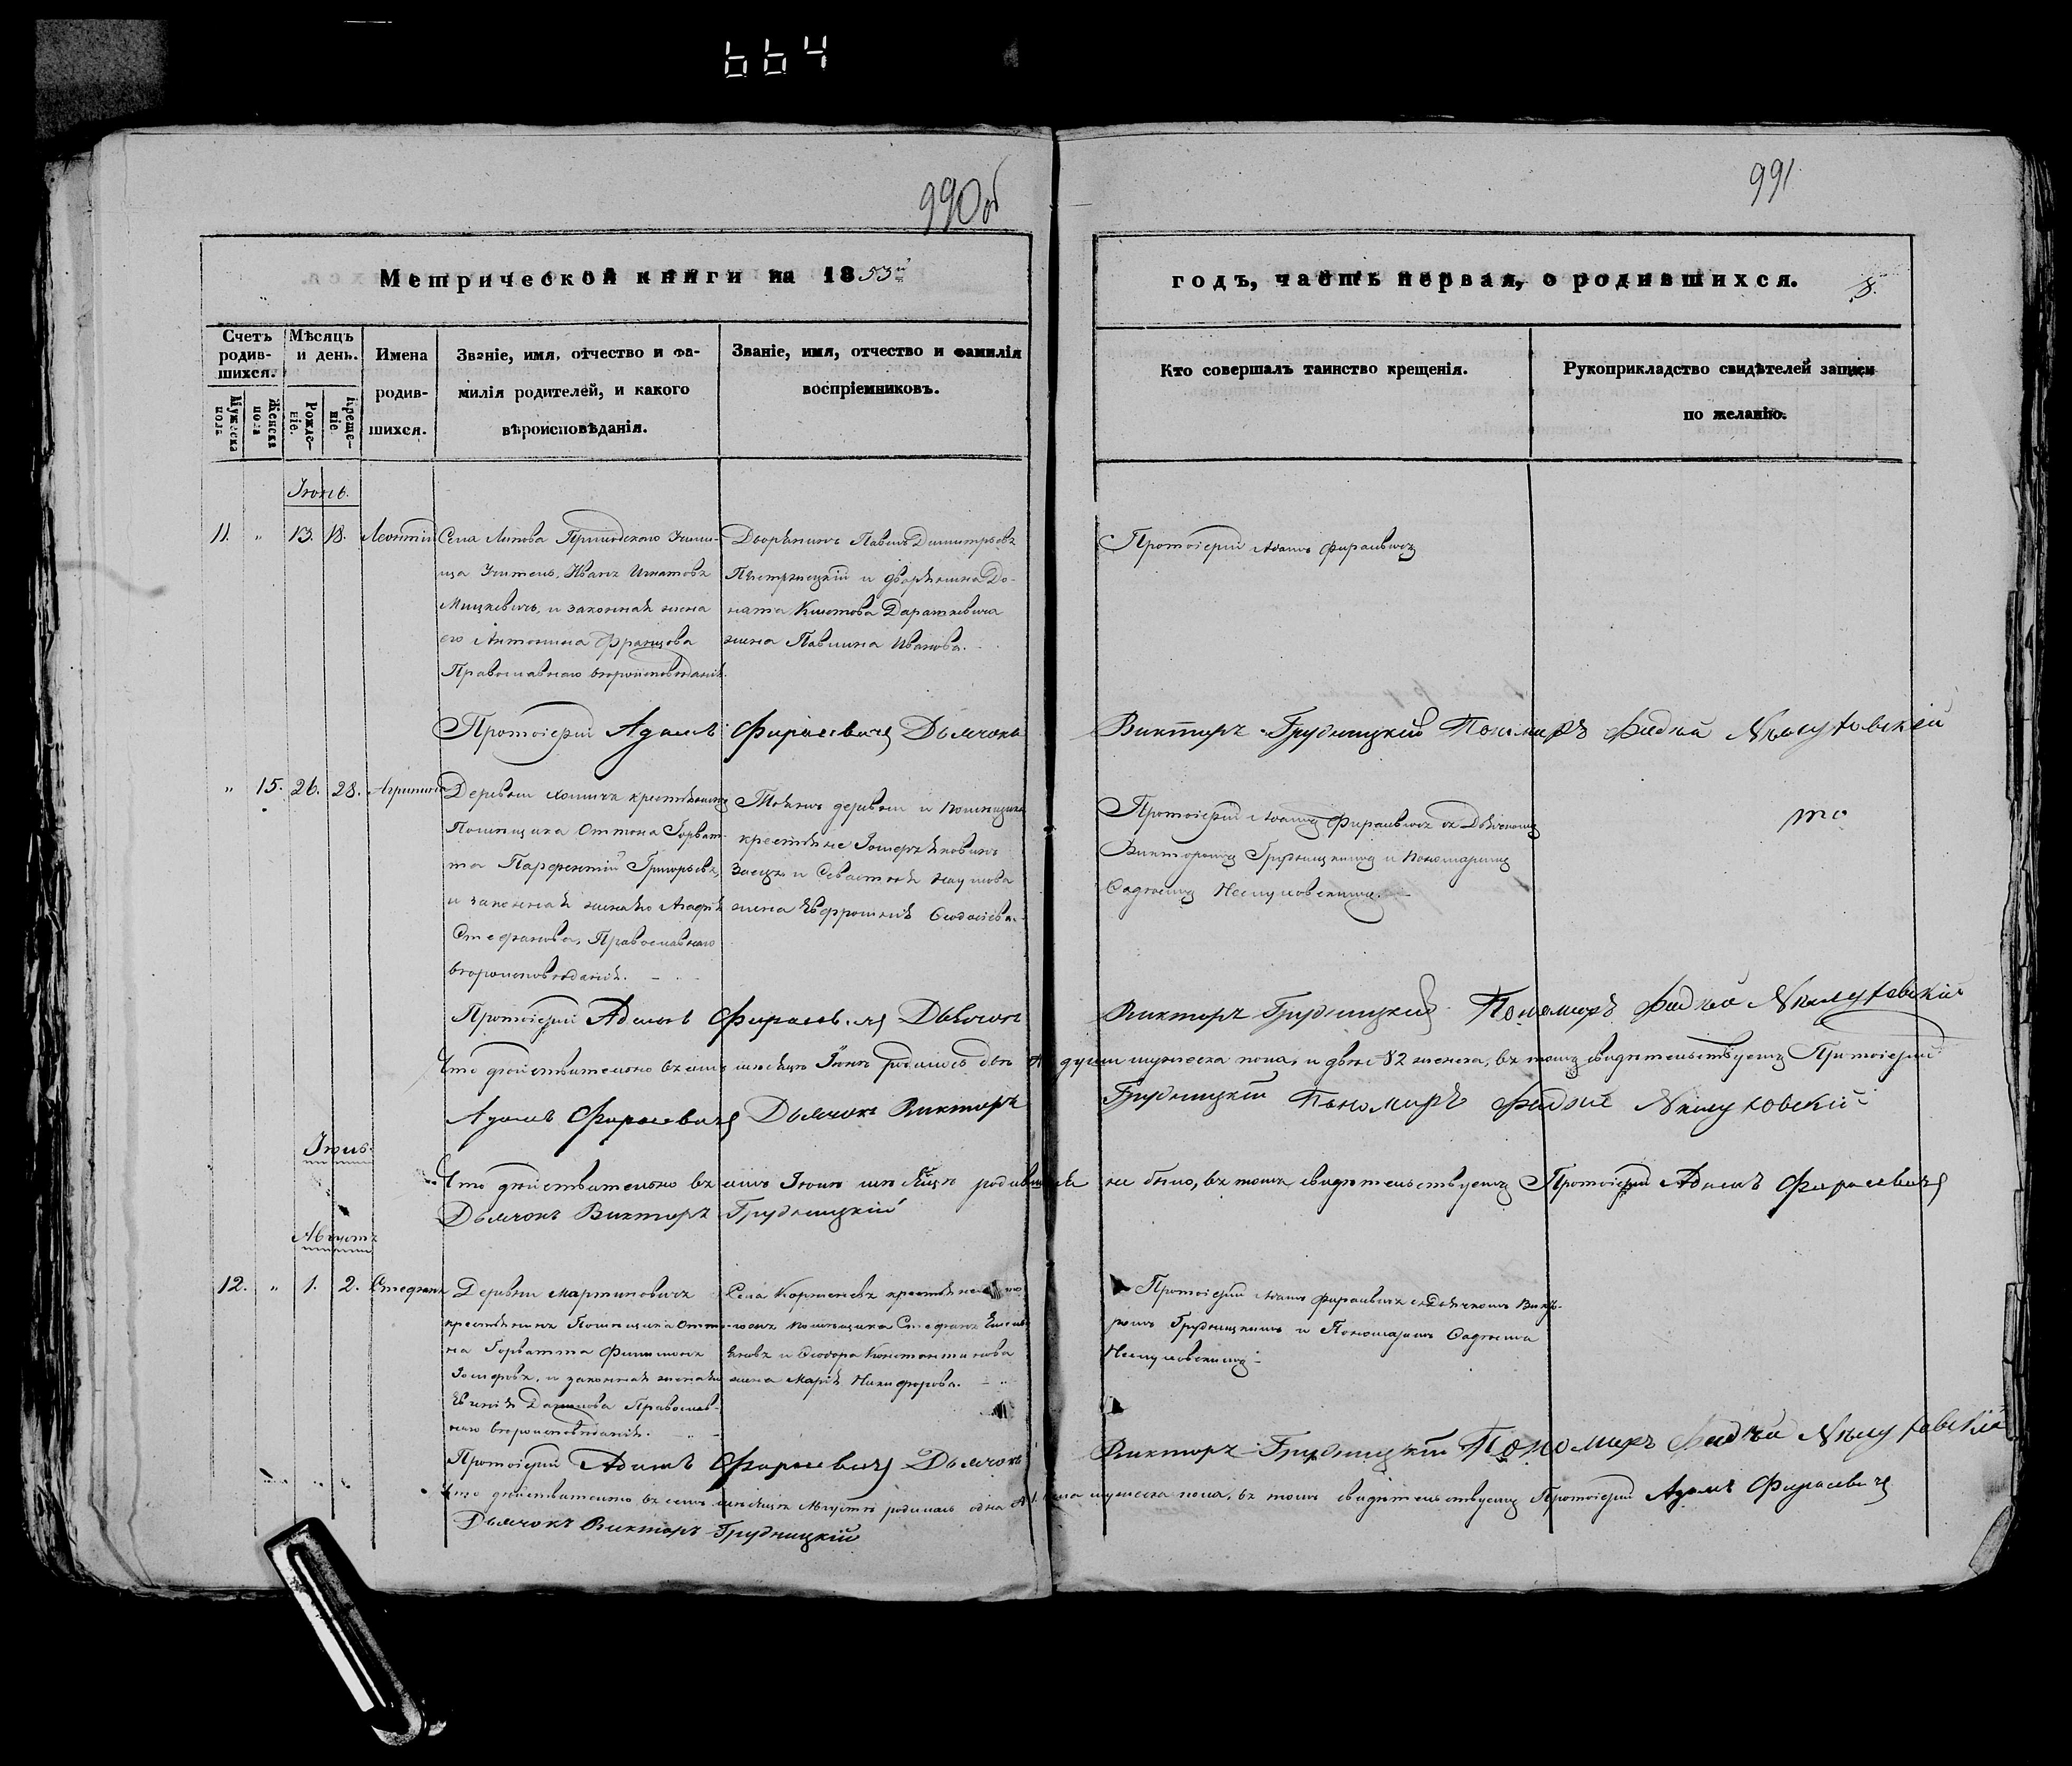 664
990об
991
Метрической книги на 1853й
годъ, часть первая, о родившихся.
8.
Счетъ родив-шихся.
Мужеска пола
Женска пола
Мѣсяцъ и день.
Рожде-ніе.
Креще-ніе.
Имена
родив-
шихся.
Званіе, имя, отчество и фа-
милія родителей, и какого
вѣроисповѣданія.
Званіе, имя, отчество и фамилія
воспріемниковъ.
Кто совершалъ таинство крещенія.
Рукоприкладство свидѣтелей записи
по желанію.
Іюнь.
11. " 13. 18. Леонтій
Села Липова Приходскаго Учили-
ща Учитель, Иванъ Игнатовъ
Мицкевичъ, и законная жена
его Антонина Францова
Православнаго вѣроисповѣданія.
Дворянинъ Павелъ Димитріевъ
и дворянина До-
ната
жена Павлина Иванова.
Протоіерей Адамъ Фирасевичъ
Протоіерей Адамъ Фирасевичъ Дьячокъ
Викторъ Грудницкій Пономарь Фадѣй
" 15. 26. 28.
Деревни крестьянинъ
Помѣщика Оттона Горват-
та Парфентій Григорьевъ,
и законная жена его Агафія
Стефанова, Православнаго
вѣроисповѣданія.
Тояжъ деревни и помѣщика
крестьяне
Заецъ и Севастіяна Наумова
жена Евфросинія Ѳеодосіева.
Протоіерей Адамъ Фирасевичъ съ Дьячкомъ
Викторомъ Грудницкимъ и Пономаремъ
Фадѣемъ
то
Протоіерей Адамъ Фирасевичъ Дьячокъ
Викторъ Грудницкій Пономарь Фадѣй
Что дѣйствительно въ семъ мѣсяцѣ Іюнѣ родилось двѣ
души мужеска пола, и двѣ № 2 женска, въ томъ свидѣтельствуемъ Протоіерей
Адамъ Фирасевичъ Дьячокъ Викторъ
Грудницкій Пономарь Фадѣй
Іюль.
Что дѣйствительно въ семъ Іюлѣ мѣсяцѣ родившихся
не было, въ томъ свидѣтельствуемъ Протоіерей Адамъ Фирасевичъ
Дьячокъ Викторъ Грудницкій
Августъ
12. " 1. 2. Стефанъ
Деревни Мартиновичъ
крестьянинъ Помѣщика Отто-
на Горватта Филимонъ
Іосифовъ, и законная жена его
Данилова Православ-
наго вѣроисповѣданія.
Села
помѣщика Стефанъ
и Ѳеодора Константинова
жена Марія Никифорова.
Протоіерей Адамъ Фирасевичъ съ Дьячкомъ Викто-
ромъ Грудницкимъ и Пономаремъ Фадѣемъ
Протоіерей Адамъ Фирасевичъ Дьячокъ
Викторъ Грудницкій Пономарь Фадѣй
Что дѣйствительно въ семъ мѣсяцѣ Августѣ родилась одна № 1
мужеска пола, въ томъ свидѣтельствуемъ Протоіерей Адамъ Фирасевичъ
Дьячокъ Викторъ Грудницкій